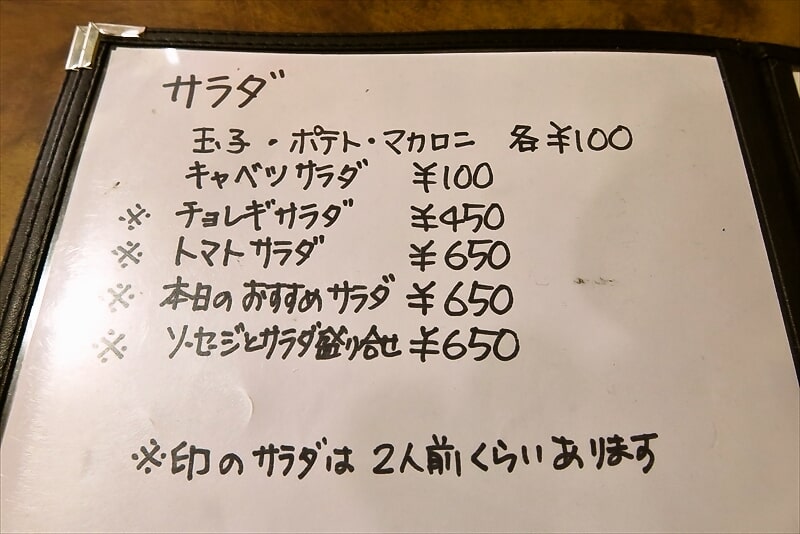 サラダ
玉子・ポテト・マカロニ 各¥100
キャベツサラダ ¥100
※ チョレギサラダ ¥450
※ トマトサラダ ¥650
※ 本日のおすすめサラダ ¥650
※ ソーセージとサラダ盛り合せ ¥650
※印のサラダは2人前くらいあります